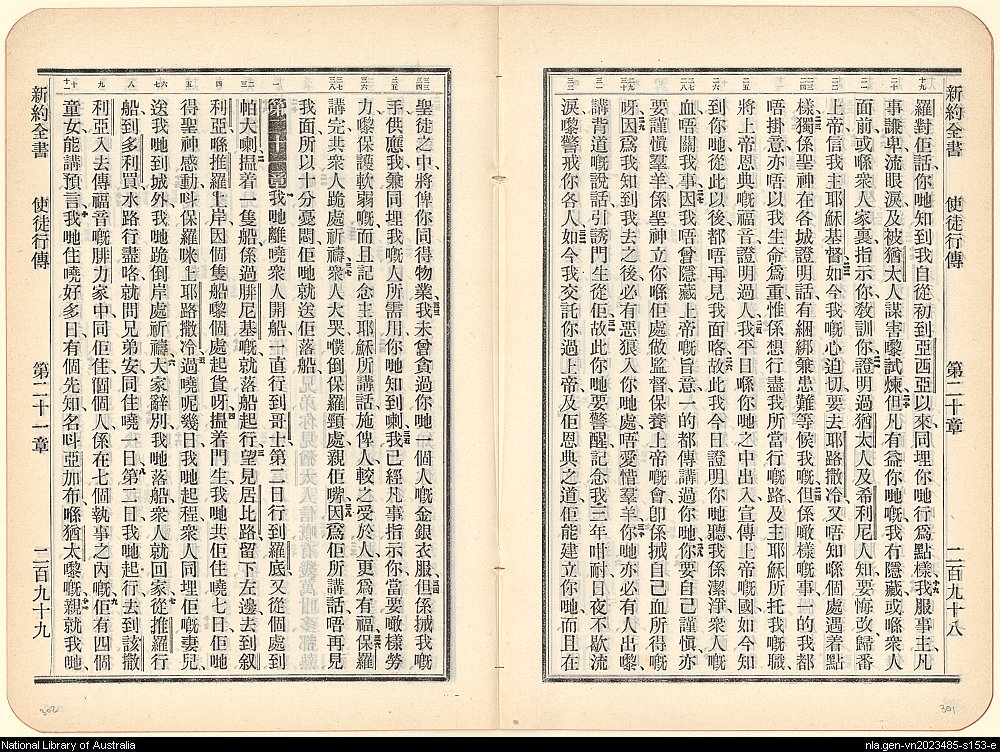 新約全書 使徒行傳 第二十章 二百九十八
羅對佢話、你哋知到我自從初到亞西亞以來、同埋你哋行爲點樣、我服事主、凡
事謙卑、流眼淚、及被猶太人謀害嚟試煉、但凡有益你哋嘅、我冇隱藏、或喺衆人
面前、或喺衆人家裏、指示你、敎訓你、證明過猶太人及希利尼人知、要悔改歸番
上帝、信我主耶穌基督、如今我嘅心迫切、要去耶路撒冷、又唔知喺個處遇着點
樣、獨係聖神在各城證明、話有綑綁兼患難等候我嘅、但係噉樣嘅事、一的我都
唔掛意、亦唔以我生命爲重、惟係想行盡我所當行嘅路、及主耶穌所托我嘅職、
將上帝恩典嘅福音、證明過人、我平日喺你哋之中出入、宣傳上帝嘅國、如今知
到你哋從此以後都唔再見我面咯、故此我今日證明你哋聽、我係潔淨、衆人嘅
血唔關我事、因我唔曾隱藏上帝嘅旨意、一的都傳講過你哋、你要自己謹慎、亦
要謹慎羣羊、係聖神立你喺佢處做監督、保養上帝嘅會、卽係搣自己血所得嘅
呀、因爲我知到我去之後、必有惡狼入你哋處、唔愛惜羣羊、你哋亦必有人出嚟、
講背道嘅說話、引誘門生從佢、故此你哋要警醒、記念我三年咁耐、日夜不歇流
淚、嚟警戒你各人、如今我交託你過上帝、及佢恩典之道、佢能建立你哋、而且在
聖徒之中、將俾你同得物業、我未曾貪過你哋一個人嘅金銀衣服、但係搣我嘅
手、供應我兼同埋我嘅人所需用、你哋知到喇、我已經凡事指示你、當要噉樣勞
力、嚟保護軟弱嘅、而且記念主耶穌所講話、施俾人、較之受於人、更爲有福、保羅
講完、共衆人跪處祈禱、衆人大哭、噗倒保羅頸處、親佢嘴、因爲佢所講話唔再見
我面、所以十分憂悶、佢哋就送佢落船、
第二十一章 我哋離嘵衆人開船、一直行到哥士、第二日行到羅底、又從個處到
帕大喇、搵着一隻船、係過腓尼基嘅、就落船起行、望見居比路、留下左邊、去到叙
利亞、喺推羅上岸、因個隻船嚟個處起貨呀、搵着門生、我哋共佢住嘵七日、佢哋
得聖神感動、呌保羅咪上耶路撒冷、過嘵呢幾日、我哋起程、衆人同埋佢嘅妻兒、
送我哋到城外、我哋跪倒岸處祈禱、大家辭別、我哋落船、衆人就回家、從推羅行
船、到多利買、水路行盡咯、就問兄弟安、同佢住嘵一日、第二日我哋起行、去到該撒
利亞、入去傳福音嘅腓力家中、同佢住、個個人係在七個執事之內嘅、佢有四個
童女、能講預言、我哋住嘵好多日、有個先知名呌亞加布、喺猶太嚟嘅、親就我哋
新約全書 使徒行傳 第二十一章 二百九十九
302
301
National Library of Australia
nla.gen-vn2023485-s153-e